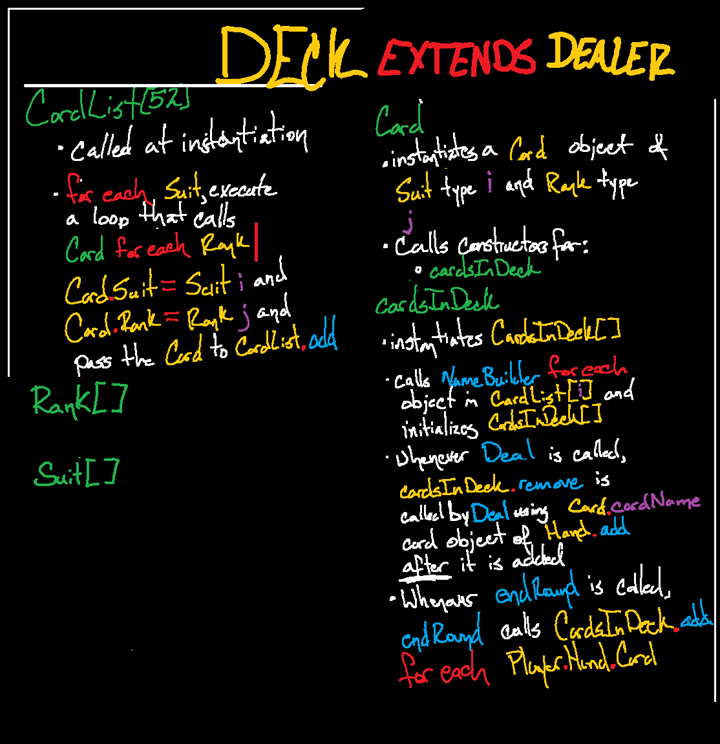 DECK EXTENDS DEALER
CardList[52]
• called at instantiation
• for each Suit, execute
a loop that calls
Card for each Rank |
Card.Suit = Suit i and
Card.Rank = Rank j and
pass the Card to CardList.add
Rank[]
Suit[]
Card
• instantiates a Card object of
Suit type i and Rank type
j
• Calls constructors for:
◦ cardsInDeck
cardsInDeck
• instantiates CardsInDeck[]
• calls NameBuilder for each
object in CardList[i] and
initializes CardsInDeck[]
• Whenever Deal is called,
cardsInDeck.remove is
called by Deal using Card.cardName
card object of Hand.add
after it is added
• Whenever endRound is called,
endRound calls CardsInDeck.add
for each Player.Hand.Card